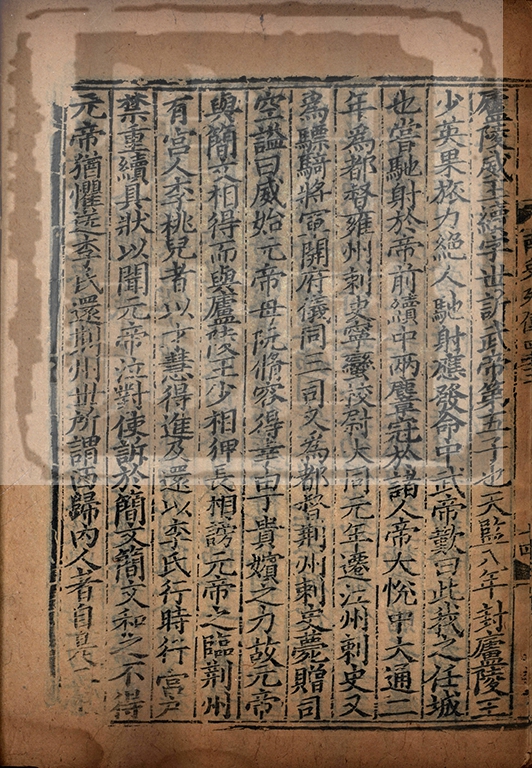 廬陵威王續字世訢武帝第五子也天監八年封廬陵王
少英果旅力絶人馳射應發命中武帝歎曰此我之任城
也嘗馳射於帝前續中兩麞冠於諸人帝大悅中大通二
年為都督雍州刺史寧蠻校尉大同元年遷江州刺史又
為驃騎將軍開府儀同三司又為都督荆州刺史薨贈司
空謚曰威始元帝母阮脩容得幸由丁貴嬪之力故元帝
與簡文相得而與廬陵王少相狎長相謗元帝之臨荆州
有宫人李桃兒者以才慧得進及還以李氏行時行宫戶
禁重續具狀以聞元帝泣對使訴於簡文簡文和之不得
元帝猶懼送李氏還荆州世所謂西歸内人者自是二